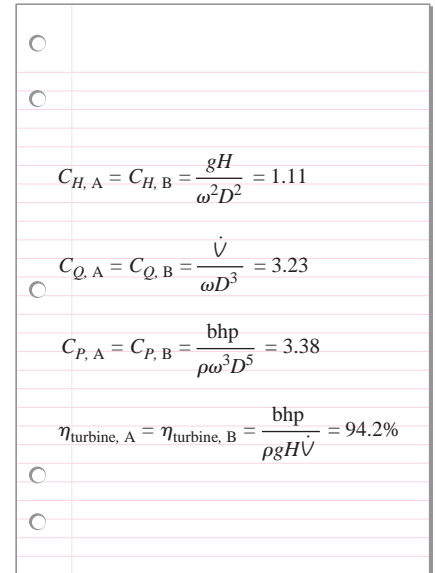 C_{H, A} = C_{H, B} = \frac{gH}{\omega^2 D^2} = 1.11
C_{Q, A} = C_{Q, B} = \frac{\dot{V}}{\omega D^3} = 3.23
C_{P, A} = C_{P, B} = \frac{bhp}{\rho\omega^3 D^5} = 3.38
\eta_{turbine, A} = \eta_{turbine, B} = \frac{bhp}{\rho gH\dot{V}} = 94.2%